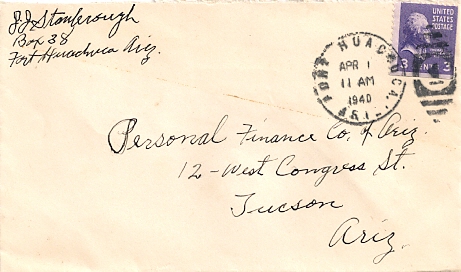 JJ Stanbrough
Box 38
Fort Huachuca Ariz.
UNITED
STATES
POSTAGE
3 CENTS 3
FORT HUACHUCA, ARIZ.
APR 1
11 AM
1940
Personal Finance Co. of Ariz.
12-West Congress St.
Tucson
Ariz.